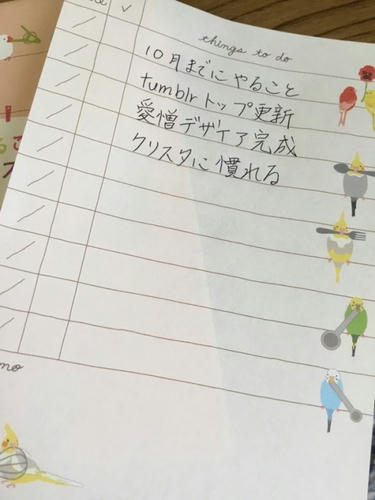 ✓
things to do
10月までにやること
tumblrトップ更新
愛憎デザイア完成
クリスタに慣れる
mo